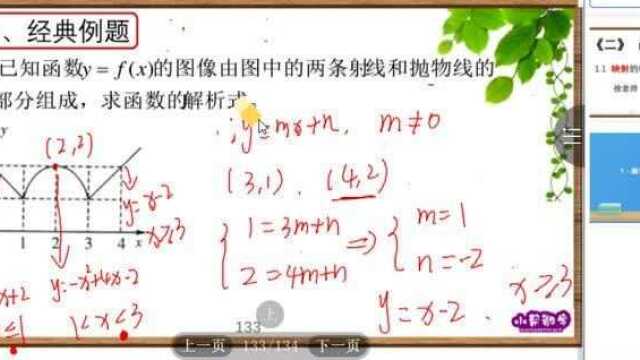 、经典例题
已知函数y = f(x)的图像由图中的两条射线和抛物线的
部分组成，求函数的解析式。
y
(2,2)
1 2 3 4 x
y=x-2
x≥3
x+2
≤1
y=-x²+4x-2
1<x<3
; y=mx+n, m≠0
(3,1)、(4,2)
{ 1=3m+n
2=4m+n
⇒ { m=1
n=-2
y=x-2 . x≥3
上
133
上一页 133/134 下一页
小帮助学
《二》
1.1 映射的